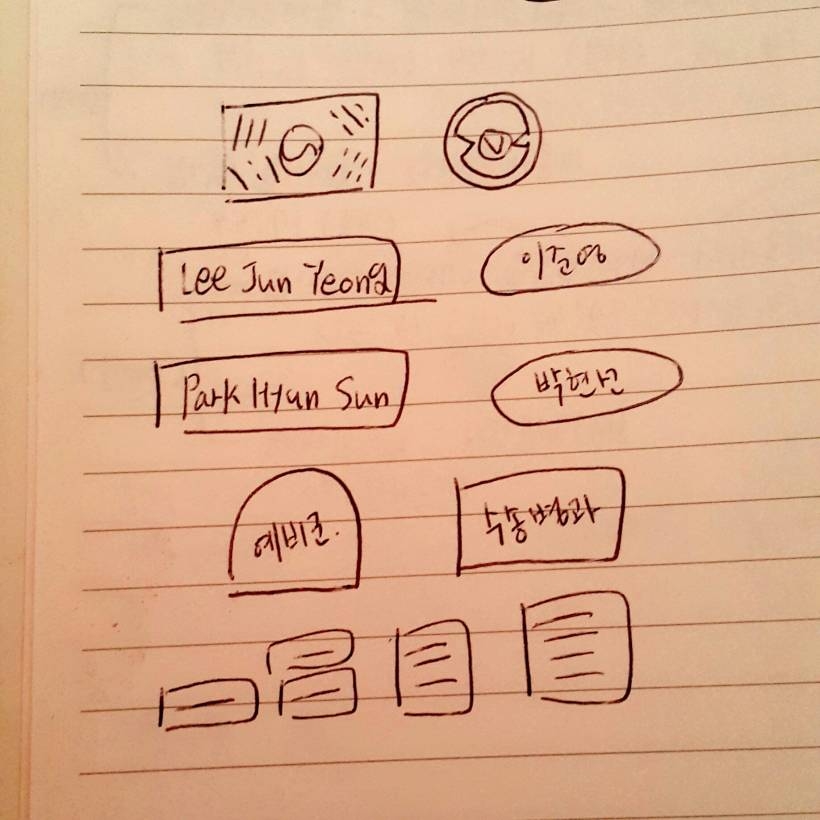 Lee Jun Yeong 이준영
Park Hyun Sun 박현선
예비군.
수송병과